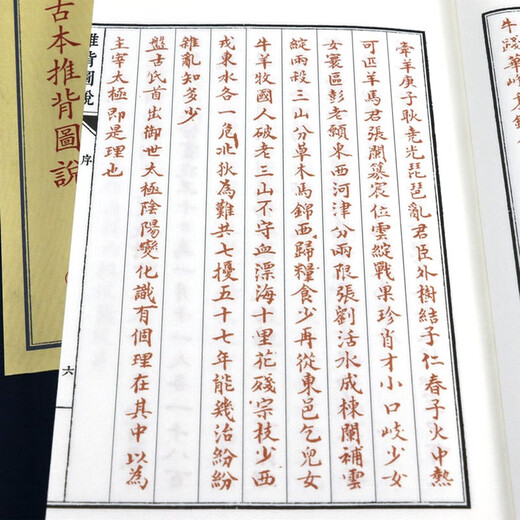 牽羊庚子耿堯光琵琶亂君臣外樹結子仁春子火中熱
可匹羊馬君張闌纂宸位雲綻戰果珍肖才小口岐少女
女襄區彭老頭東西河津分兩限張劉活水成棟闌補雲
綻兩殺三山分草木馬錦西歸糧食少再從東邑乞兒女
牛羊牧國人破老三山不守血漂海十里花殘宗枝少西
戎東水各一危北狄為難共七擾五十七年能幾治紛紛
雜亂知多少
盤古氏首出御世太極陰陽變化識有個理在其中以為
主宰太極即是理也
推背圖說
序
六
古本推背圖說